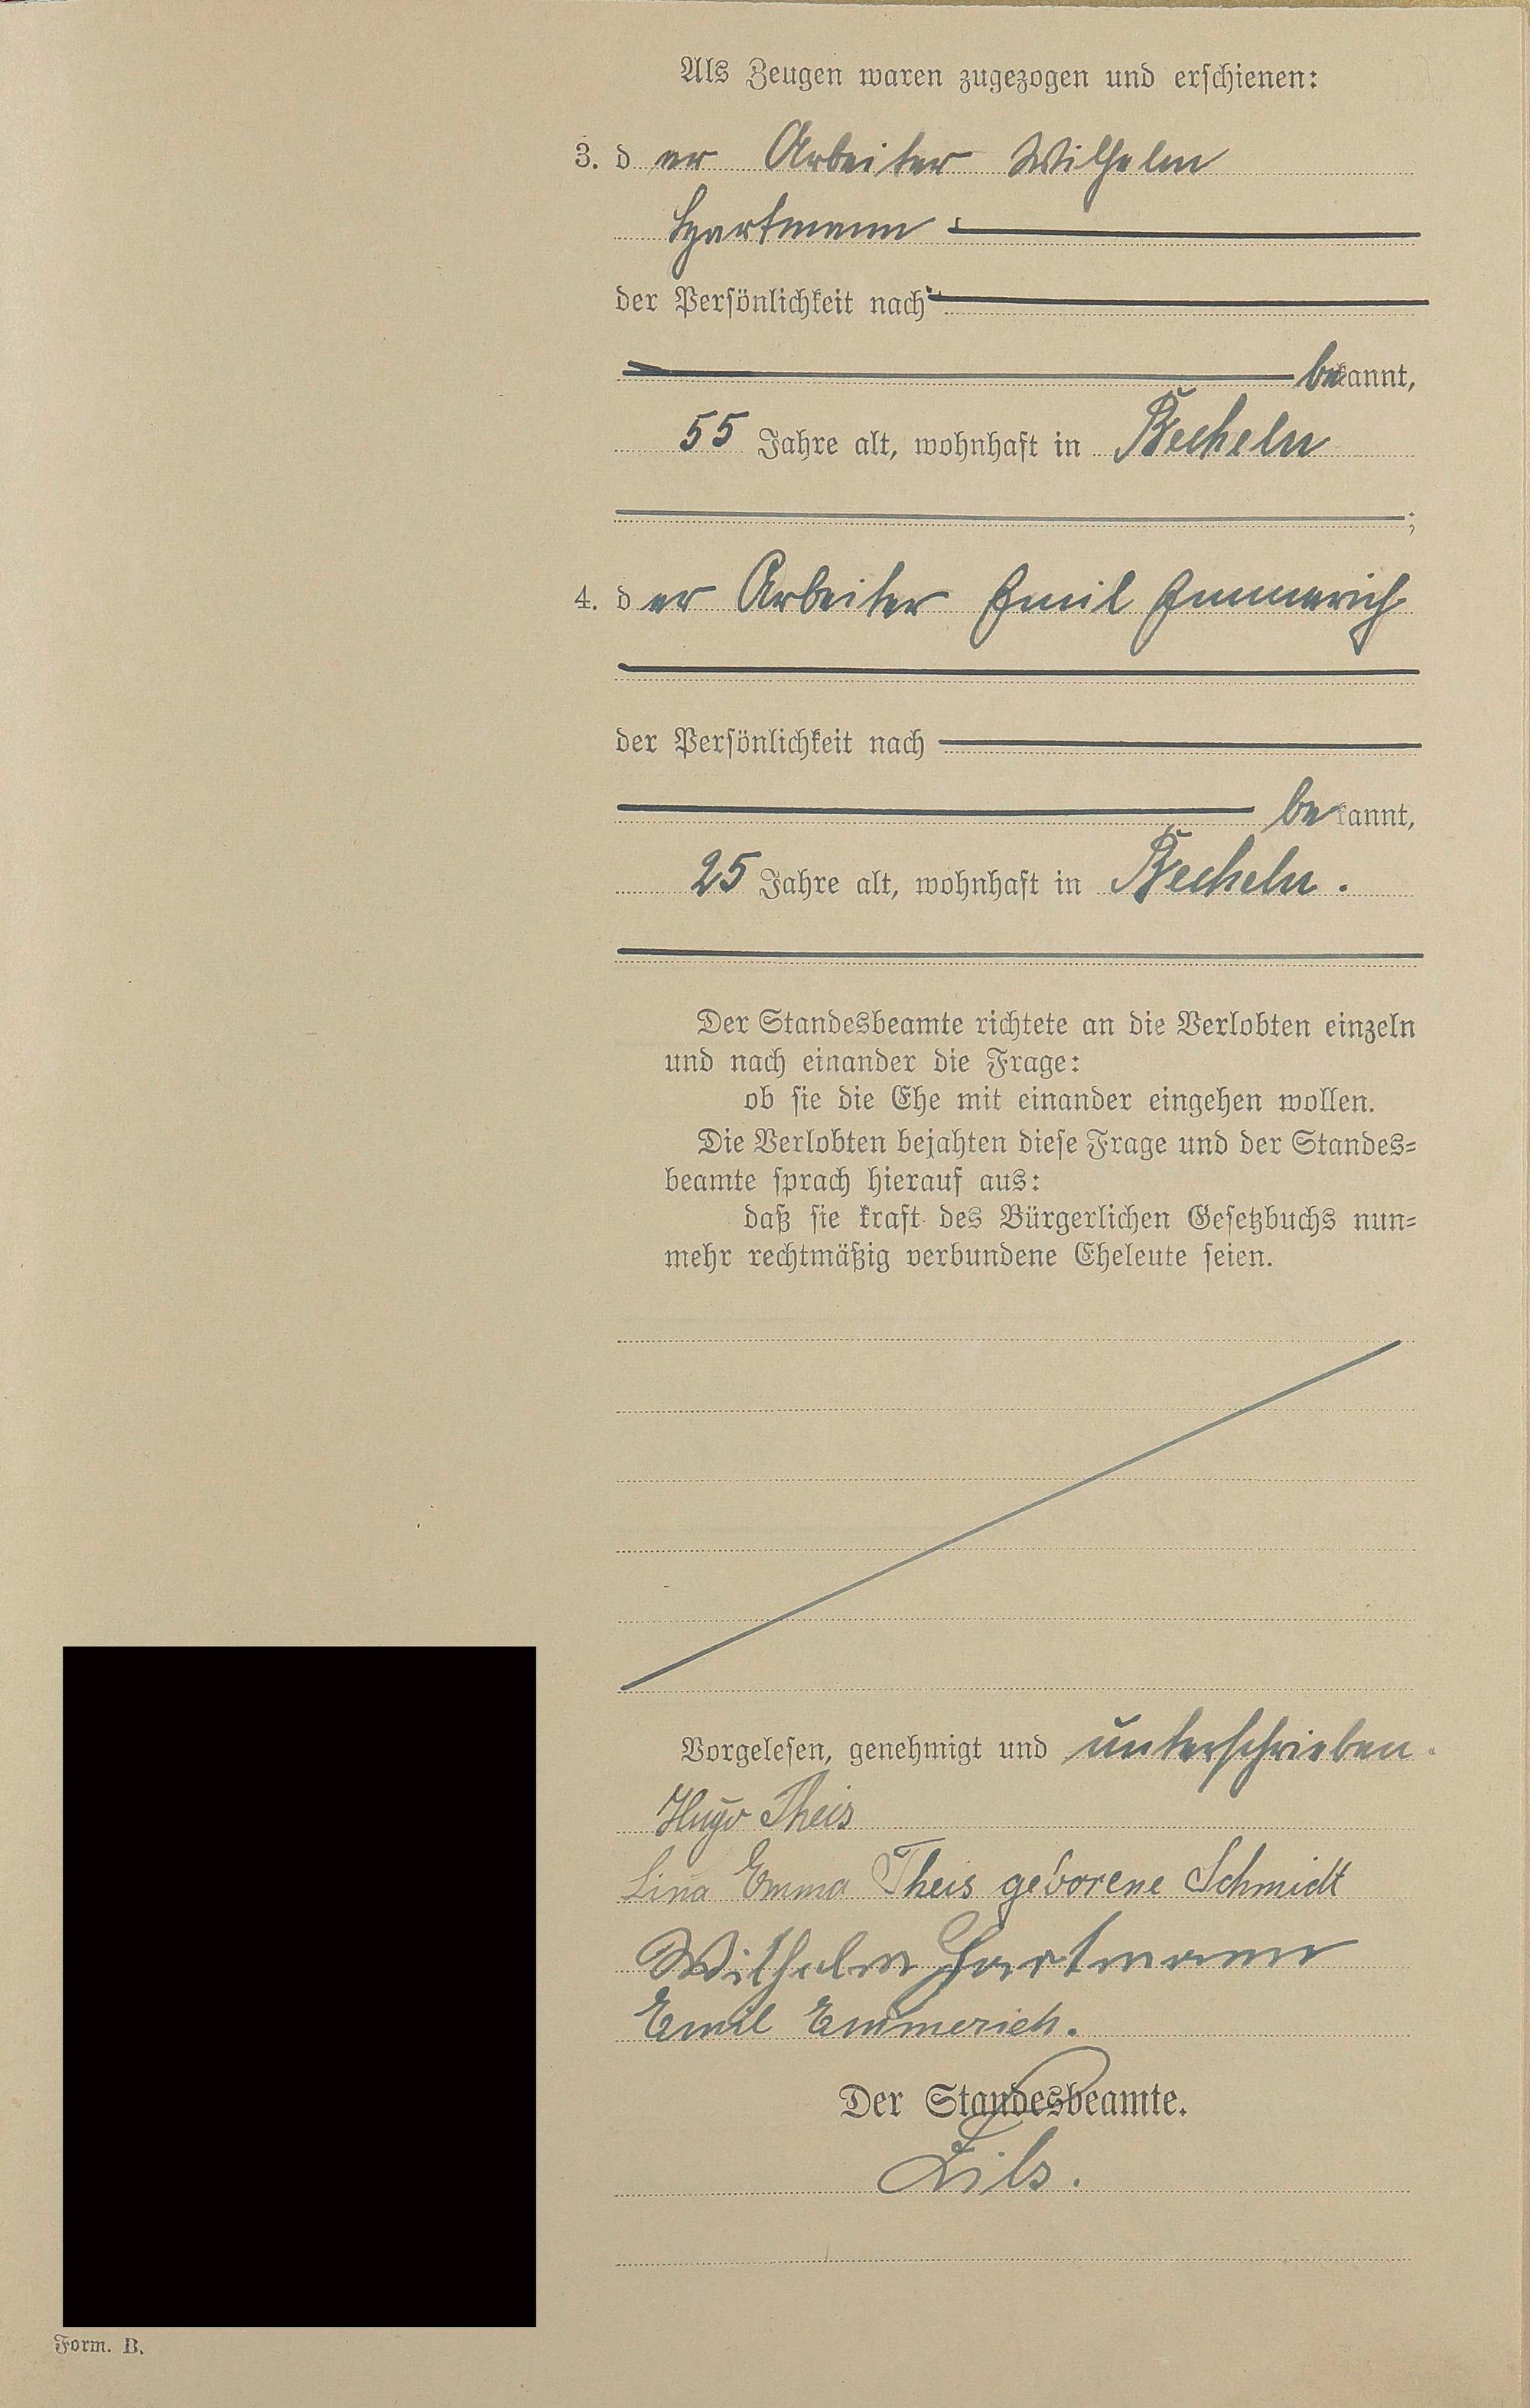 Als Zeugen waren zugezogen und erschienen:
3. der Arbeiter Wilhelm
Hartmann
der Persönlichkeit nach
bekannt,
55 Jahre alt, wohnhaft in Becheln
;
4. der Arbeiter Emil Emmerich
der Persönlichkeit nach
bekannt,
25 Jahre alt, wohnhaft in Becheln.
Der Standesbeamte richtete an die Verlobten einzeln
und nach einander die Frage:
ob sie die Ehe mit einander eingehen wollen.
Die Verlobten bejahten diese Frage und der Standes-
beamte sprach hierauf aus:
daß sie kraft des Bürgerlichen Gesetzbuchs nun-
mehr rechtmäßig verbundene Eheleute seien.
Vorgelesen, genehmigt und unterschrieben.
Hugo Theis
Lina Emma Theis geborene Schmidt
Wilhelm Hartmann
Emil Emmerich.
Der Standesbeamte.
Form. B.